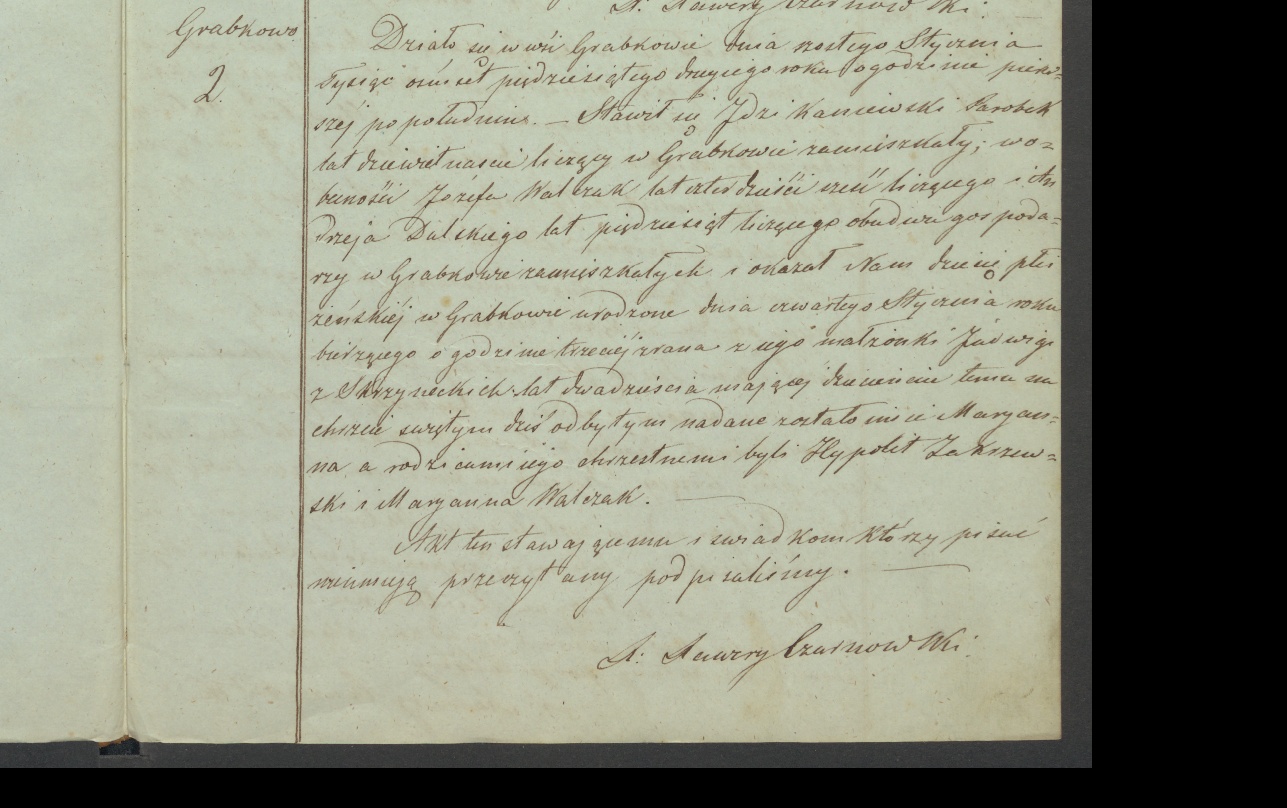 X. Xawery Czarnowski.
Grabkowo
2.
Działo się w wsi Grabkowie dnia szóstego Stycznia
Tysiąc ośmset pięćdziesiątego drugiego roku o godzinie pierw-
széj po południu. — Stawił się Jdzi Kaniewski Parobek
lat dziewietnaście liczący w Grabkowie zamieszkały; w o-
becności Józefa Walczak lat czterdzieści sześć liczącego i An
drzeja Dulskiego lat pięćdziesiąt liczącego obudwu gospoda-
rzy w Grabkowie zamięszkałych i okazał Nam dziecie płci
żeńskiéj w Grabkowie urodzone dnia czwartego Stycznia roku
bierzącego o godzinie trzeciéj zrana z iego małżonki Jadwigi
z Skrzyneckich lat dwadzieścia mającéj dziecieciu temu na
chrzcie świętym dziś odbytym nadane zostało imie Maryan-
na a rodzicami iego chrzestnemi byli Hypolit Zakrzew-
ski i Maryanna Walczak. —
Akt ten stawającemu i świadkom którzy pisać
nieumieją przeczytany podpisaliśmy. —
X. Xawery Czarnowski.